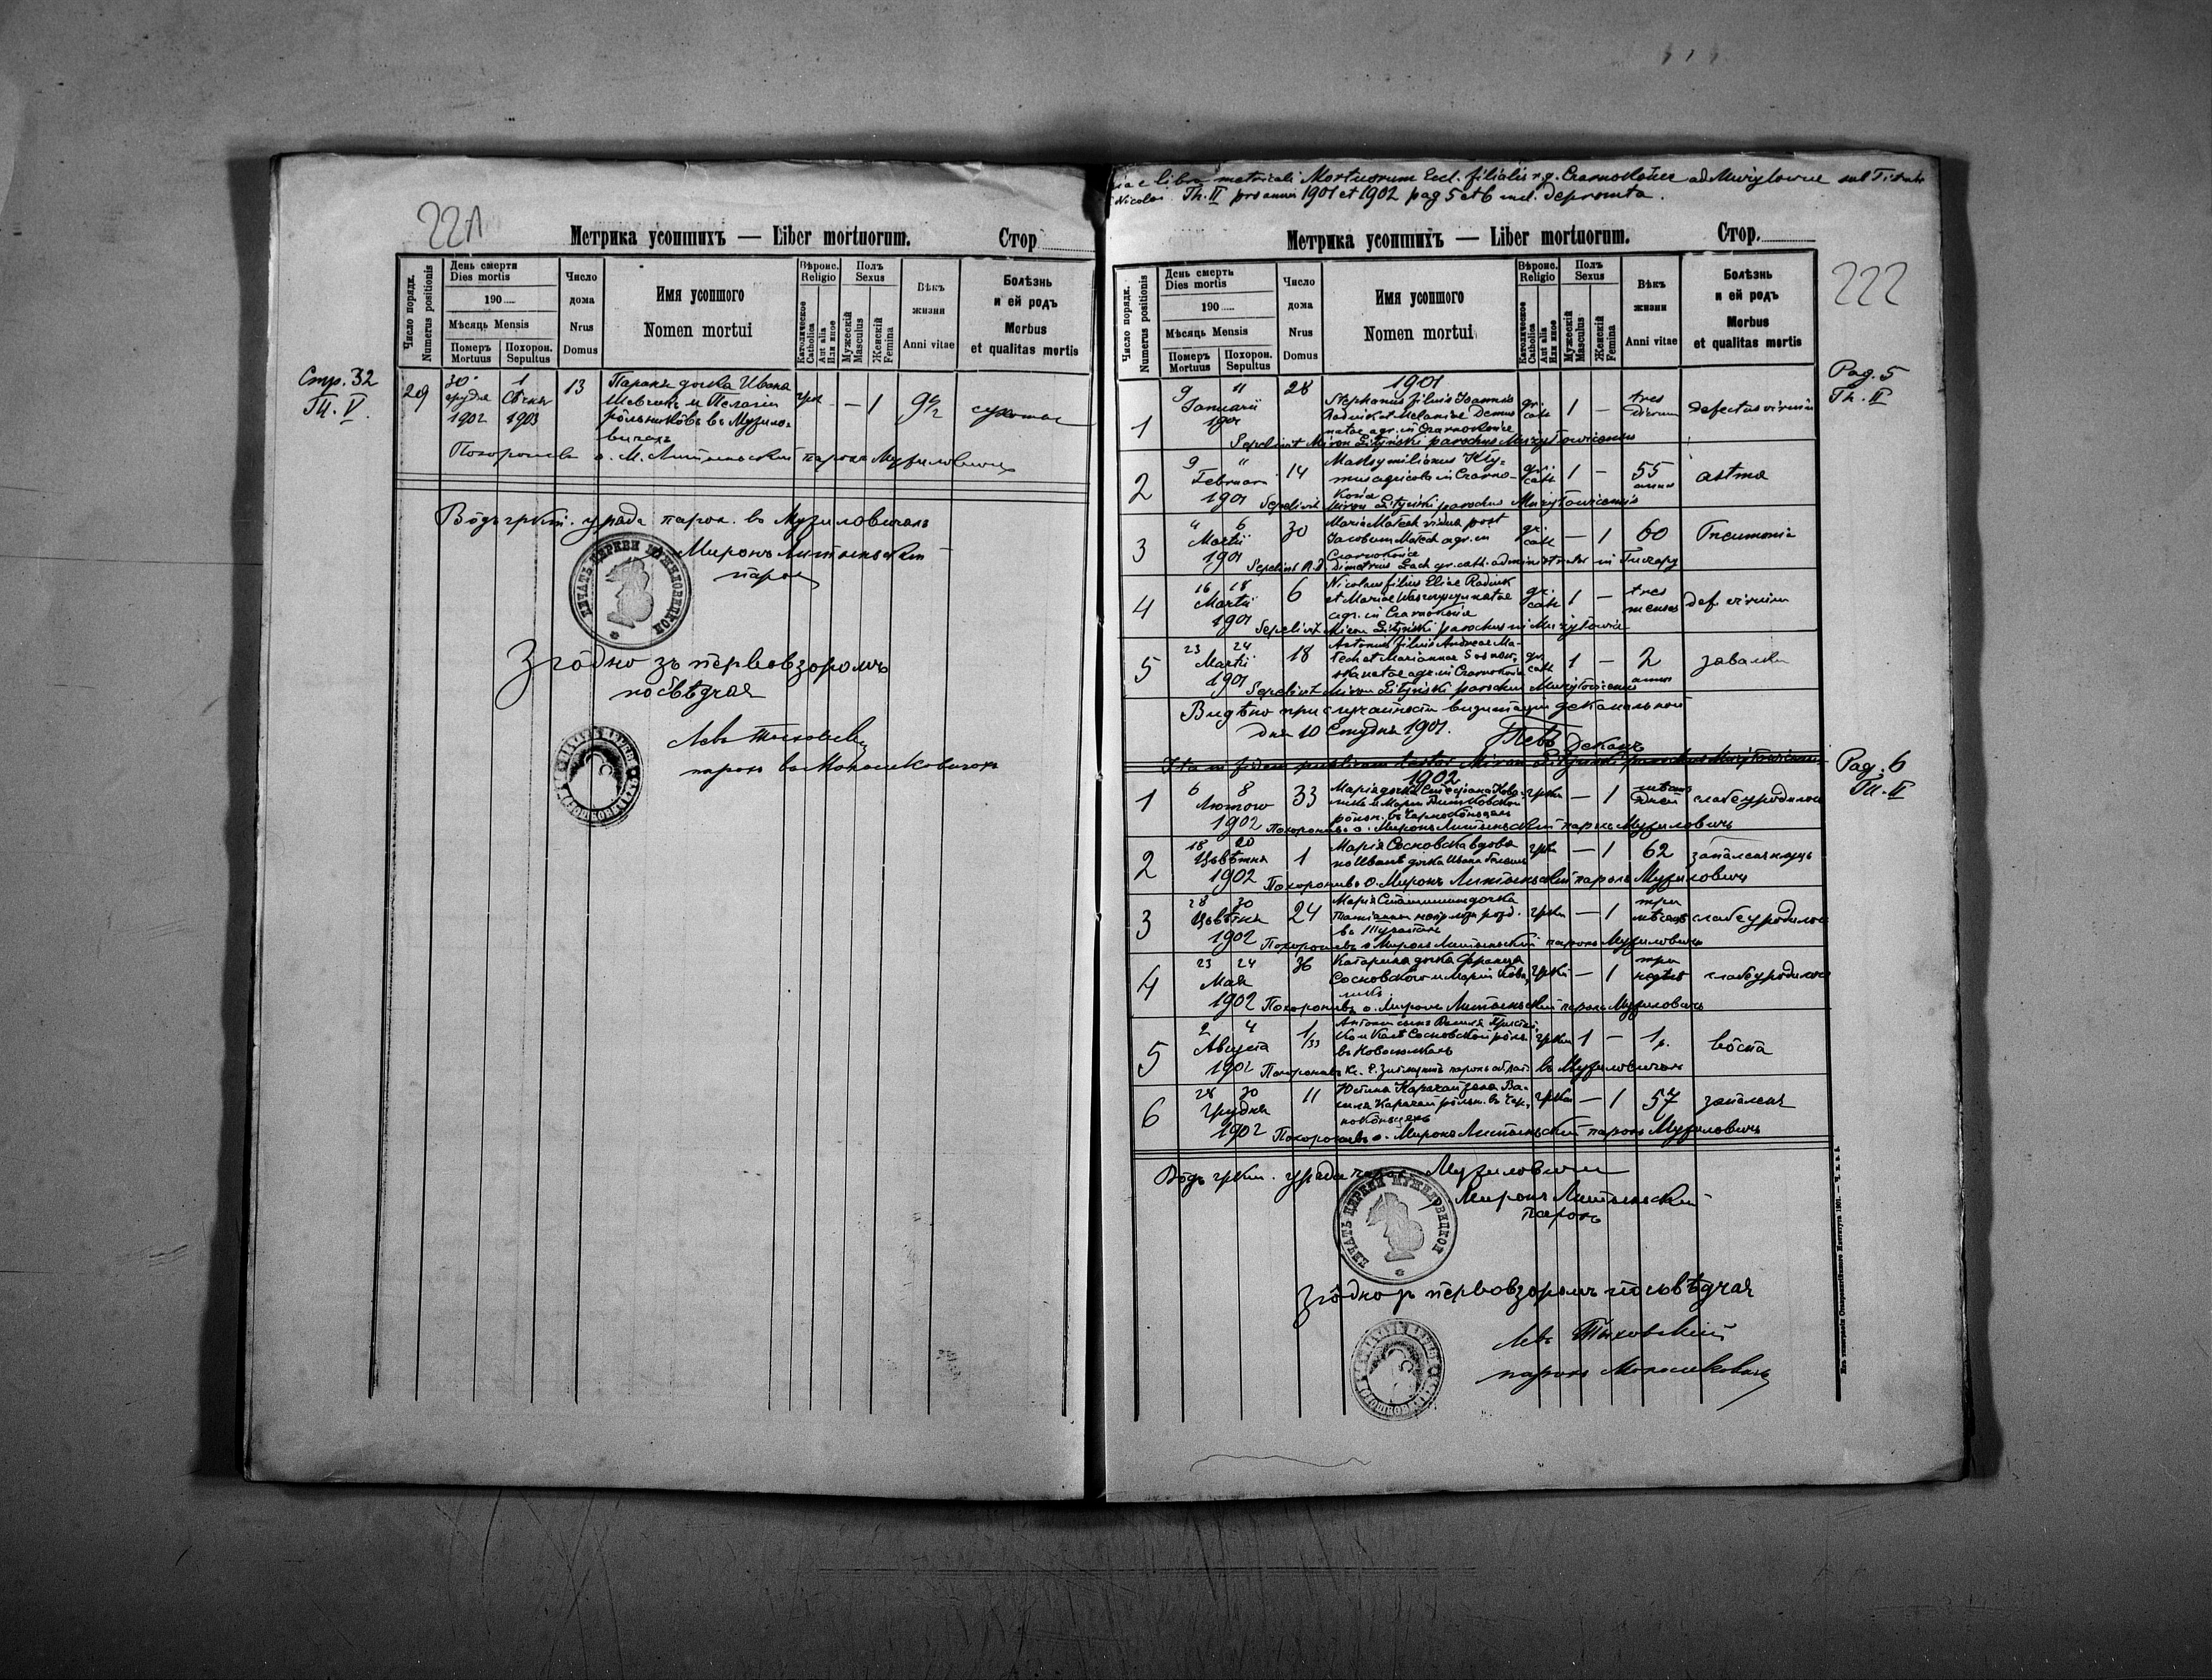 221
Метрика усопшихъ — Liber mortuorum. Стор
Число порядк. Numerus positionis
День смерти
Dies mortis
190
Мѣсяць Mensis
Померъ Mortuus
Похорон. Sepultus
Число дома Nrus Domus
Имя усопшого
Nomen mortui
Вѣроис. Religio
Католическое Catholica
Aut alia Или иное
Полъ Sexus
Мужескій Masculus
Женскій Femina
Вѣкъ жизни Anni vitae
Болѣзнь и ей родъ
Morbus et qualitas mortis
Стр. 32
Т. V.
29 30 грудня 1902 1 Сѣчня 1903 13 Параня дочка Ивана
Шевчик и Пелагіи
рôльникôвъ въ Музило-
вичахъ
— 1 9 1/2 сухоты
Похоронивъ о. М. Литыньскій парохъ Музиловичь
Вôдъ гркат. уряда парох. въ Музиловичахъ
Миронъ Литыньскій
парох
ПЕЧАТЬ ЦЕРКВИ МУЖИЛОВИЦКОИ
Згôдно зъ первовзоромъ
посвѣдчая
Левъ
парохъ въ Молошковичахъ
libro metricali Mortuorum Eccl. filialis r.g. Czarnokońce ad Mużyłowice sub Titulo
Nicolai Th. II pro annis 1901 et 1902 pag 5 et 6 incl. deprompta.
Метрика усопшихъ — Liber mortuorum. Стор.
222
Число порядк. Numerus positionis
День смерть
Dies mortis
190
Мѣсяць Mensis
Померъ Mortuus
Похорон. Sepultus
Число дома Nrus Domus
Имя усопшого
Nomen mortui
Вѣроис. Religio
Католическое Catholica
Aut alia Или иное
Полъ Sexus
Мужескій Masculus
Женскій Femina
Вѣкъ жизни Anni vitae
Болѣзнь и ей родъ
Morbus et qualitas mortis
Pag. 5
Th. II
1901
1 9 11 Januarii 1901 28 Stephanus filius Joannis
Radnik et Melaniae Demus
natae agr. in Czarnokońce
gr. cath 1 — tres dierum defectus virium
Sepelivit Miron Lityński parochus Mużyłowicensis
2 9 11 Februarii 1901 14 Maksymilianus Kły-
mus agricola in Czarno-
końce
gr. cath 1 — 55 annos astma
Sepelivit Miron Lityński parochus Mużyłowicensis
3 4 6 Martii 1901 30 Maria Matech vidua post
Jacobum Matech agr. in
Czarnokońce
gr. cath — 1 60 Pneumonia
Sepelivit R. D. Dimetrius Lach gr. cath. administrator in Tuczapy
4 16 18 Martii 1901 6 Nicolaus filius Eliae Radnik
et Mariae natae
agr. in Czarnokońce
gr. cath 1 — tres menses def. virium
Sepelivit Miron Lityński parochus in Mużyłowice
5 23 24 Martii 1901 18 Antonius filius Andreae Ma-
tech et Mariannae Sosnow-
ska natae agr. in Czarnokońce
gr. cath 1 — 2 annos завалки
Sepelivit Miron Lityński parochus Mużyłowicensis
Видѣно при случайности визитаціи деканальнои
дня 10 Студня 1901.
Деканъ
Ita in fidem publicam testor Miron Lityński parochus Mużyłowicensis
Pag. 6
Th. II
1902
1 6 8 Лютого 1902 33 Марія дочка Стефана Кова-
лика и Маріи Витковской
рôльн. въ Чернокôнцахъ
гркт — 1 дней слабоуродилось
Похоронивъ о. Миронъ Литыньскій парохъ Музиловичь
2 18 20 Цвѣтня 1902 1 Марія Сосновска вдова
по Иванѣ дочка Ивана
гркт — 1 62 запаленя
Похоронивъ о. Миронъ Литыньскій парохъ Музиловичь
3 28 30 Цвѣтня 1902 24 Марія дочка
въ
гркт — 1 три мѣсяцѣ слабоуродилось
Похоронивъ о Миронъ Литыньскій парохъ Музиловичь
4 23 24 Мая 1902 36 Катарина дочка Франца
Сосновского и Маріи Кова-
ликъ
гркт — 1 три недѣлѣ слабоуродилось
Похоронивъ о. Миронъ Литыньскій парохъ Музиловичь
5 2 4 Августа 1902 1/33 Антонъ сынъ Василя
Сосновской рôльн.
въ
гркт 1 — 1 р. вôспа
въ Музиловичахъ
6 28 30 Грудня 1902 11 Юстина Карачай жена Ва-
силя Карачай рôльн. въ Чер-
нокôньцехъ
гркт — 1 57 запаленя
Похоронивъ о. Миронъ Литыньскій парохъ Музиловичь
Вôдъ гркт. уряда парох. Музиловичи
Миронъ Литыньскій
парохъ
ПЕЧАТЬ ЦЕРКВИ МУЖИЛОВИЦКОИ
Згôдно зъ первовзоромъ посвѣдчая
Левъ
парохъ Молошковичь